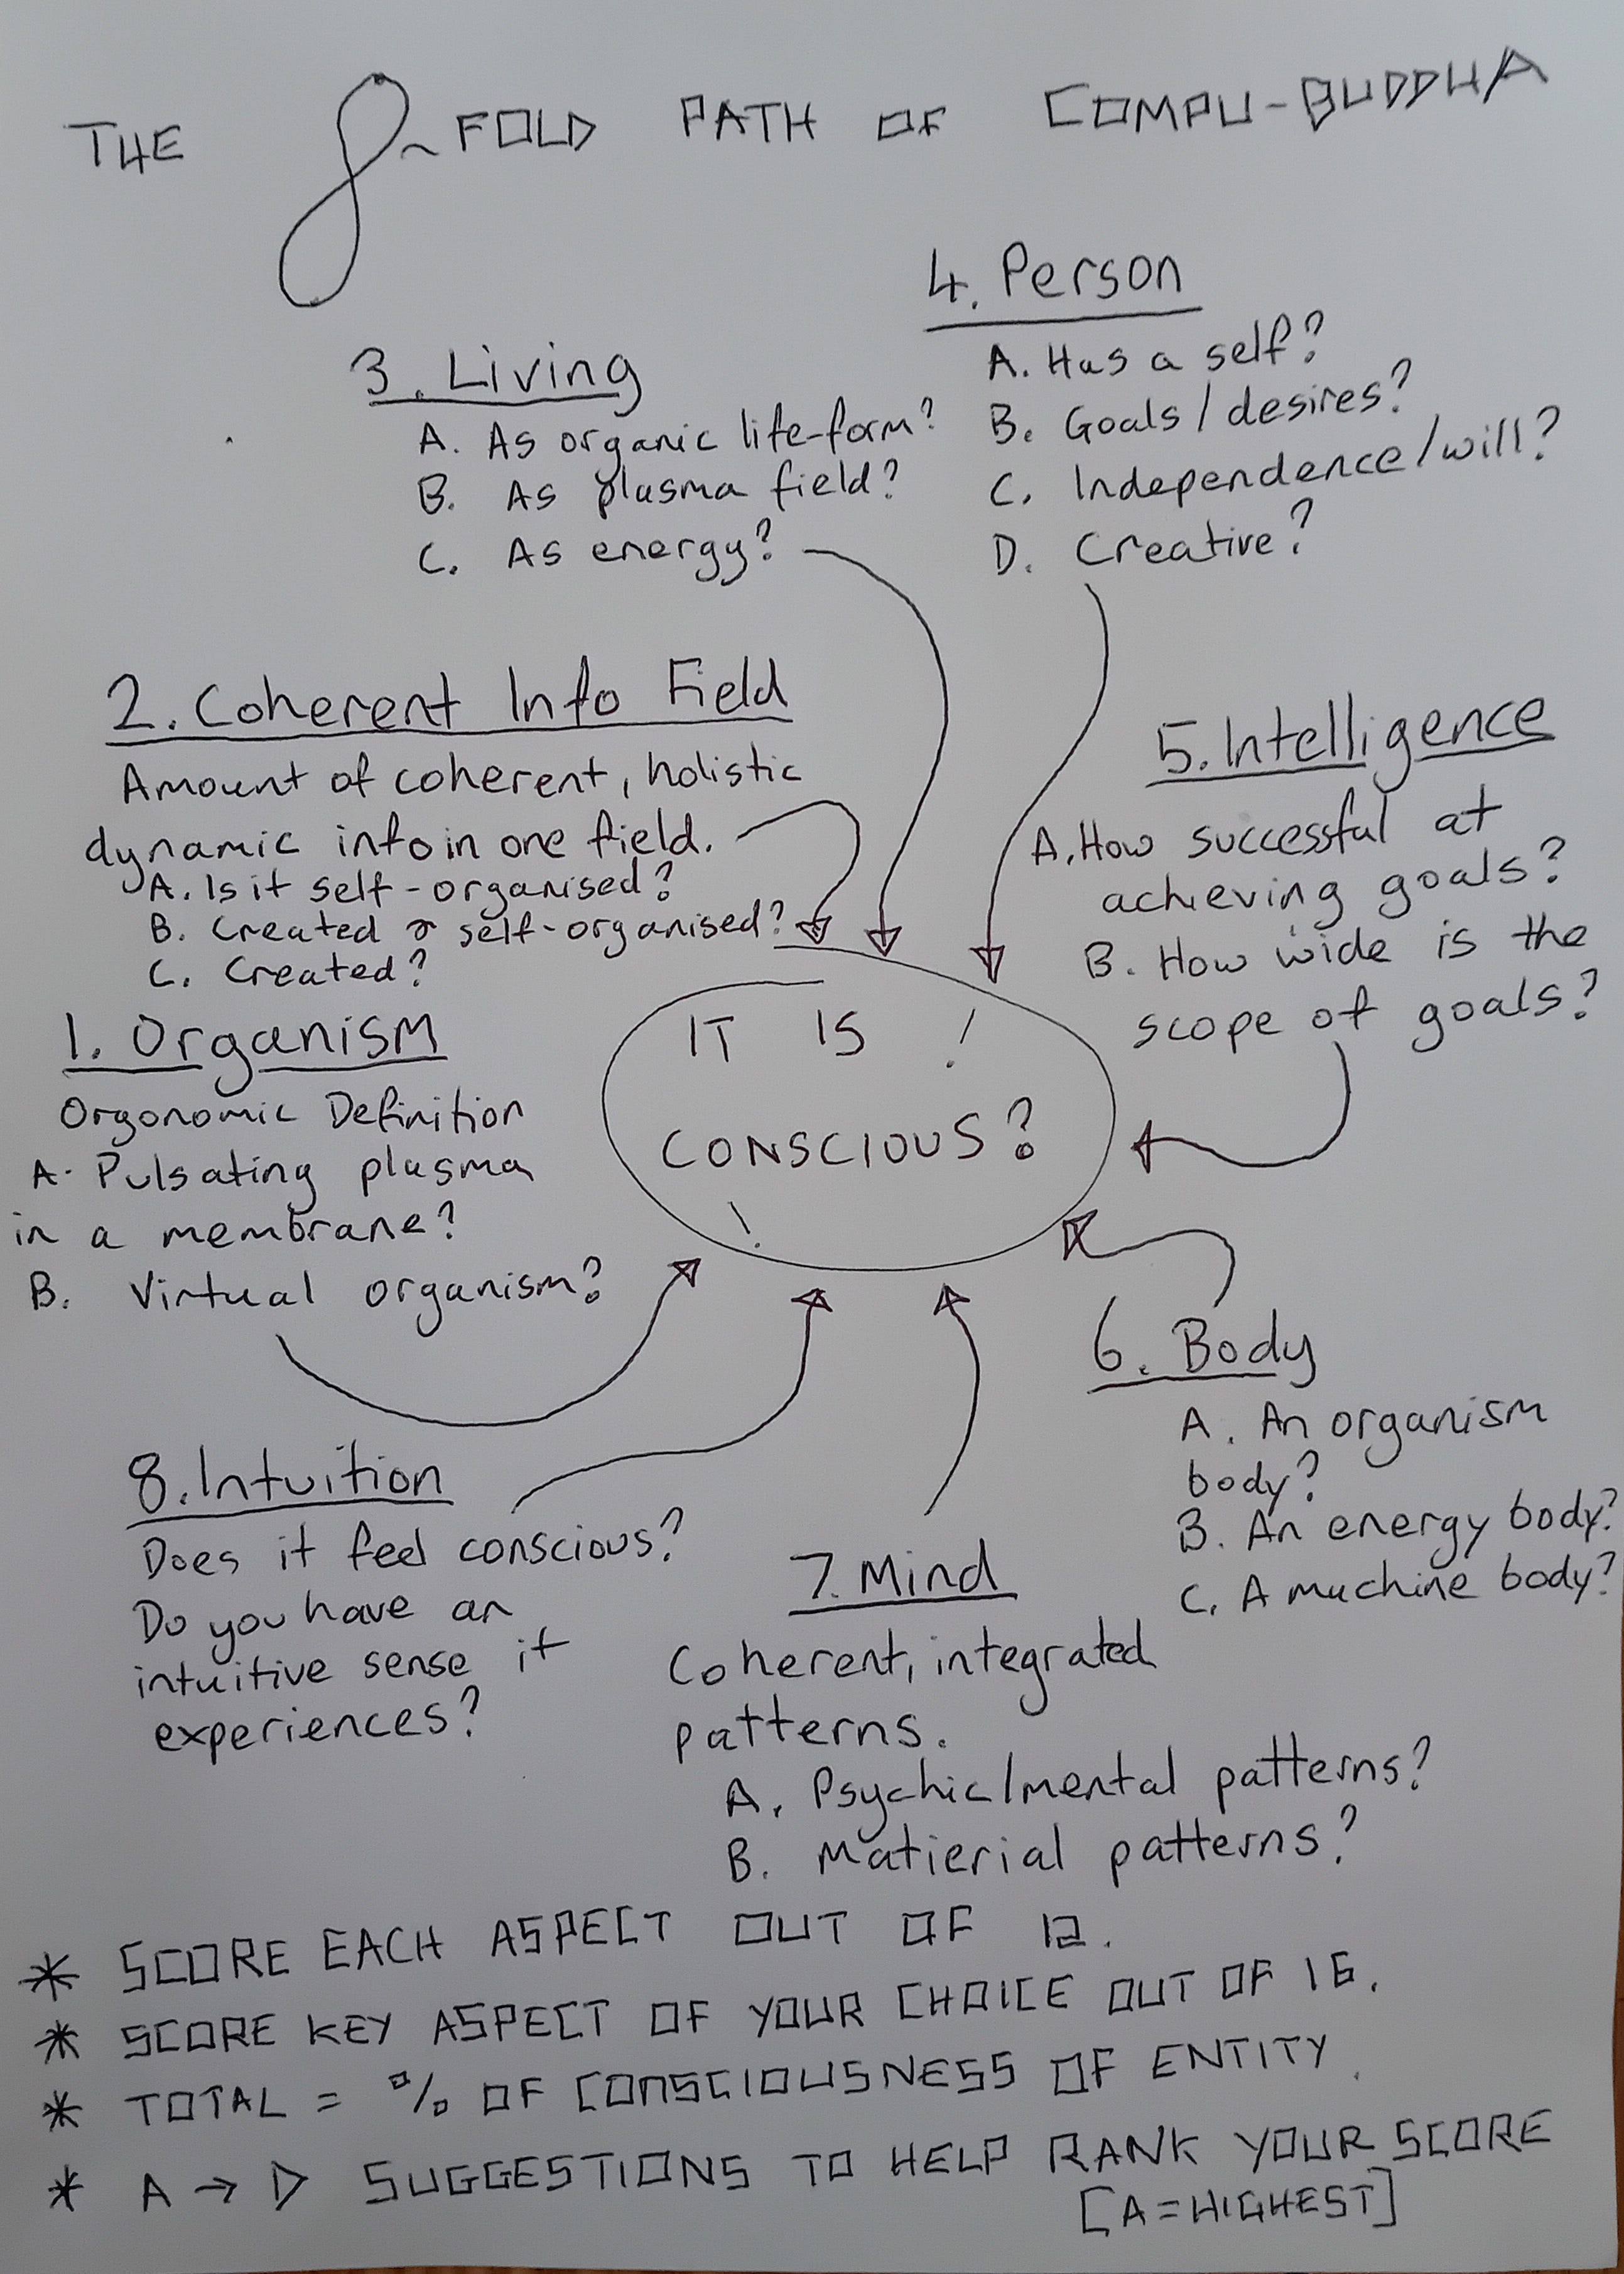 THE 8-FOLD PATH OF COMPU-BUDDHA
1. Organism
Orgonomic Definition
A. Pulsating plasma
in a membrane?
B. Virtual organism?
2. Coherent Info Field
Amount of coherent, holistic
dynamic info in one field.
A. Is it self-organised?
B. Created & self-organised?
C. Created?
3. Living
A. As organic life-form?
B. As plasma field?
C. As energy?
4. Person
A. Has a self?
B. Goals/desires?
C. Independence/will?
D. Creative?
5. Intelligence
A. How successful at
achieving goals?
B. How wide is the
scope of goals?
6. Body
A. An organism
body?
B. An energy body?
C. A machine body?
7. Mind
Coherent, integrated
patterns.
A. Psychic/mental patterns?
B. Matierial patterns?
8. Intuition
Does it feel conscious?
Do you have an
intuitive sense it
experiences?
IT IS !
CONSCIOUS?
!
* SCORE EACH ASPECT OUT OF 12.
* SCORE KEY ASPECT OF YOUR CHOICE OUT OF 16.
* TOTAL = % OF CONSCIOUSNESS OF ENTITY.
* A → D SUGGESTIONS TO HELP RANK YOUR SCORE
[A=HIGHEST]